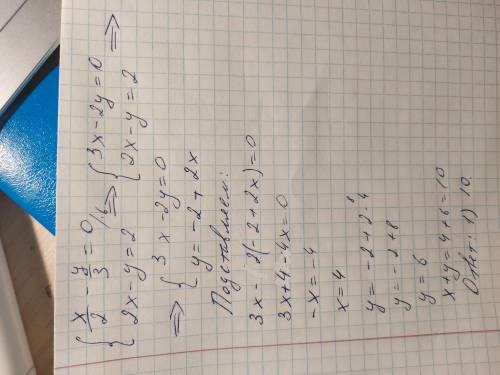 { x/2 - y/3 = 0 /·6 => { 3x - 2y = 0 =>
{ 2x - y = 2 { 2x - y = 2
=> { 3x - 2y = 0
{ y = -2 + 2x
Подставляем:
3x - 2(-2 + 2x) = 0
3x + 4 - 4x = 0
-x = -4
x = 4
y = -2 + 2·4
y = -2 + 8
y = 6
x + y = 4 + 6 = 10
Ответ: 1) 10